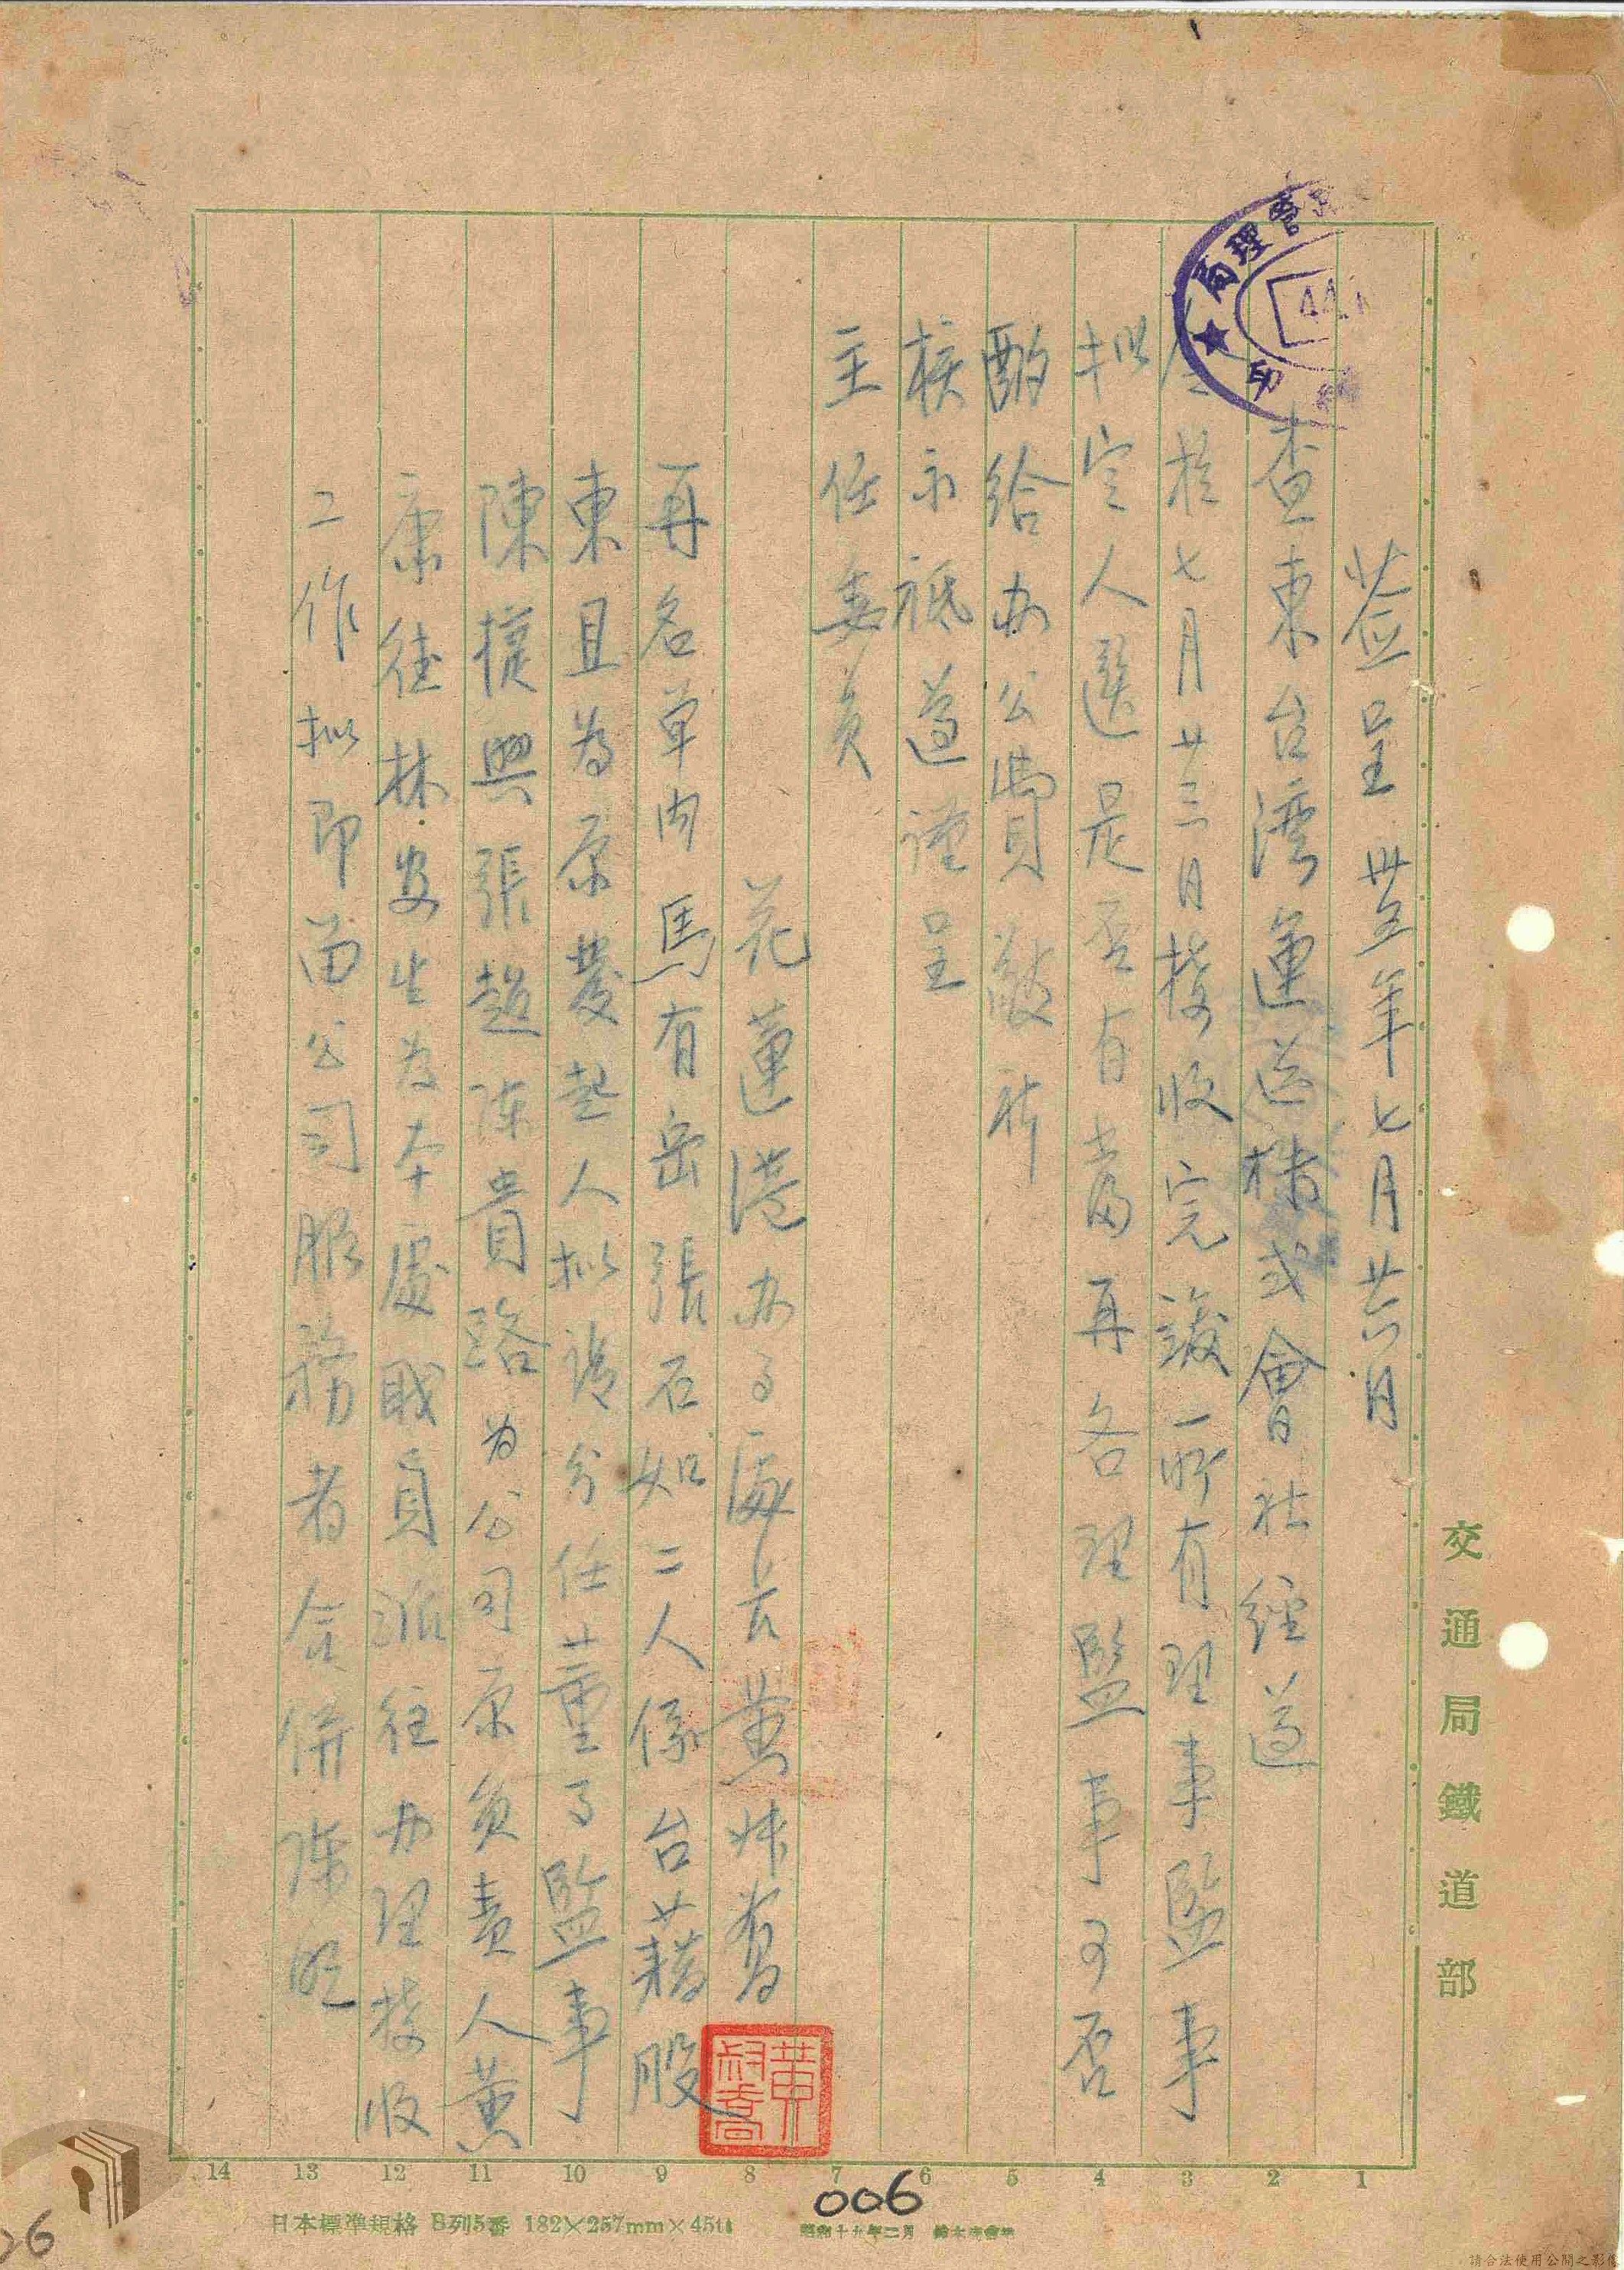 簽呈 卅五年七月廿六日
查東台灣運送株式會社經遵
於七月廿三日接收完竣所有理事監事
擬定人選是否有當再各理監事可否
酌給办公費敬祈
核示祗遵謹呈
主任委員
花蓮港办事處 黃
再名單內馬有岳張石如二人係台籍股
東且為原發起人拟請分任董事監事
陳 興張超 陳貴 為公司原負責人黃
康 林安生為本處職員派往办理接收
工作拟即留公司服務者合併陳明
交通局鐵道部
局理管
印
1 2 3 4 5 6 7 8 9 10 11 12 13 14
日本標準規格 B列5番 182×257mm×45
昭和十九年二月
006
26
請合法使用公開之影像